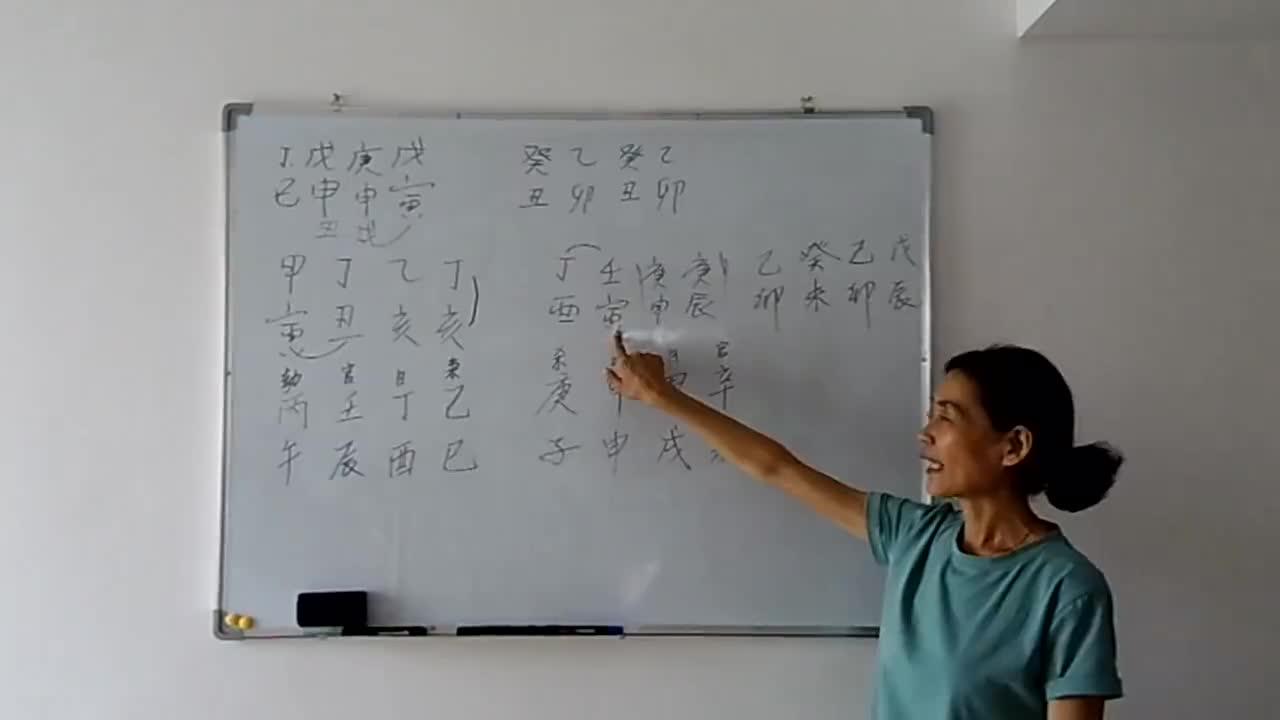 丁 戊 庚 戊 癸 乙 癸 乙
巳 申 申 寅 丑 卯 丑 卯
丑 戌
甲 丁 乙 丁 丁 壬 庚 庚 乙 癸 己 戊
寅 丑 亥 亥 酉 寅 申 辰 卯 未 卯 辰
劫 官 日 杀 杀 日 官
丙 壬 丁 乙 庚 甲 辛
午 辰 酉 巳 子 申 戌